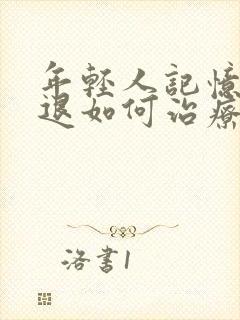 年輕人記憶
退如何治療
洛書1